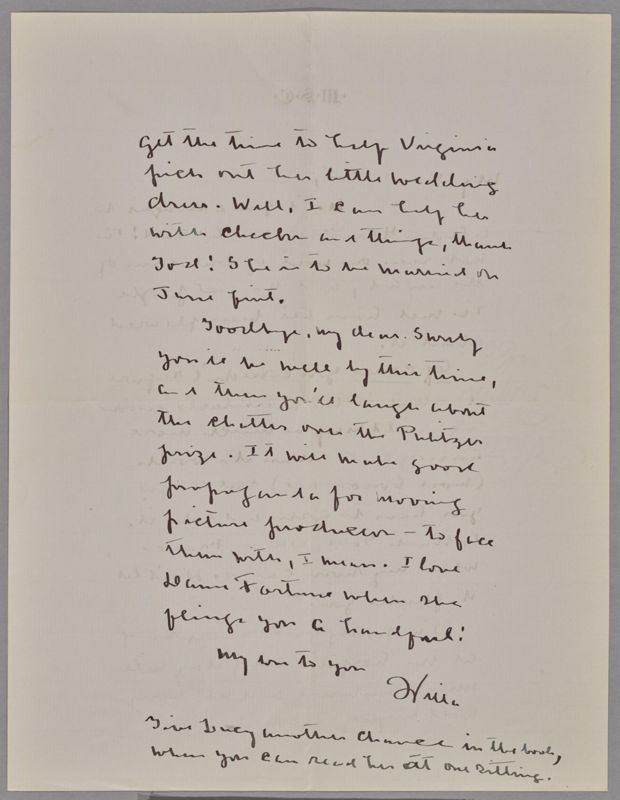 get the time to help Virginia
pick out her little wedding
dress. Well, I can help her
with checks and things, thank
God! She is to be married on
June first.
Goodbye, my dear. Surely
you'll be well by this time,
and then you'll laugh about
the chatter over the Pulitzer
prize. It will make good
propaganda for moving
picture producers — to face
them with, I mean. I love
Dame Fortune when she
flings you a handful!
My love to you
Willa
Give Lucy another chance in the book,
when you can read her at one sitting.